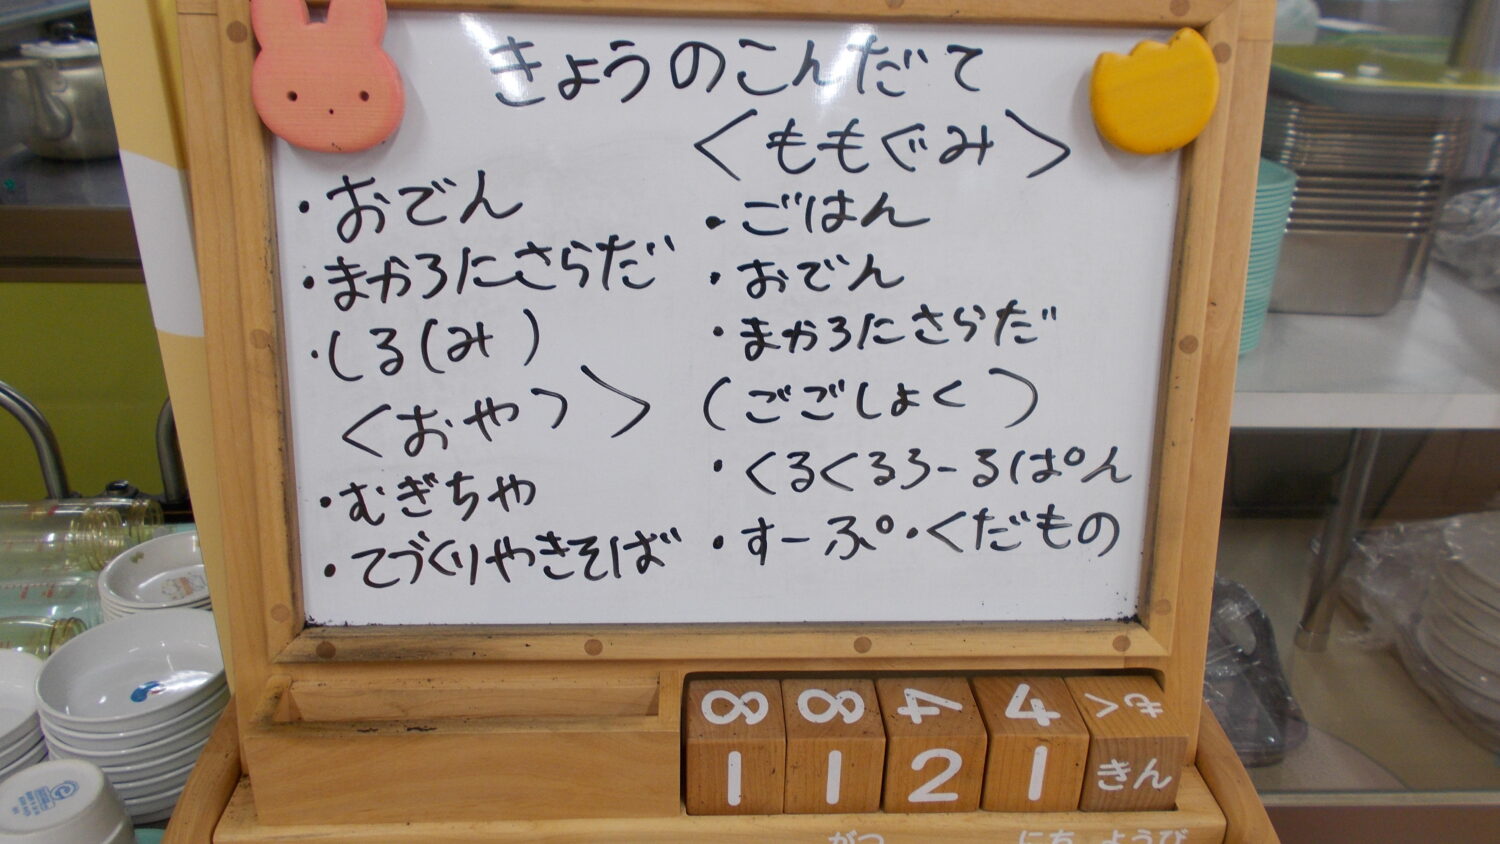 きょうのこんだて
・おでん
・まかろにさらだ
・しる(み )
<おやつ>
・むぎちゃ
・てづくりやきそば
<ももぐみ>
・ごはん
・おでん
・まかろにさらだ
(ごごしょく)
・くるくるろーるぱん
・すーぷ・くだもの
8 8 4 4 もく
1 1 2 1 きん
がつ にち ようび